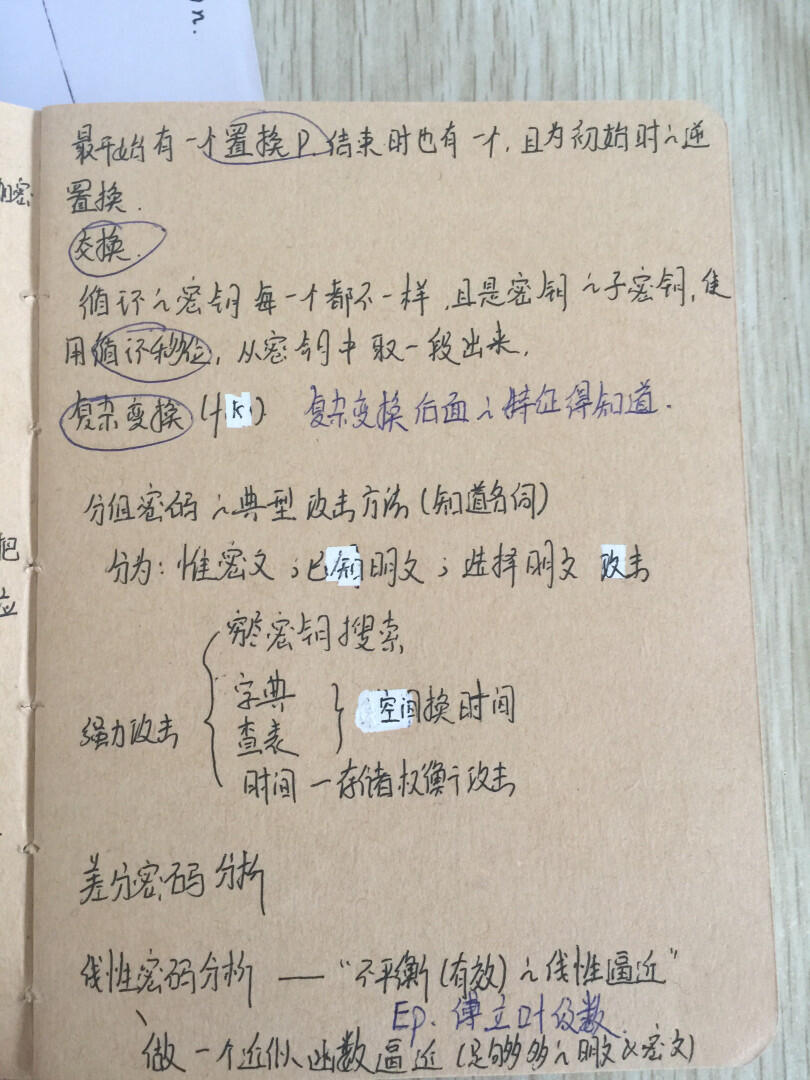 n.
最开始有一个置换P.结束时也有一个,且为初始时的逆
置换.
交换.
循环的密钥每一个都不一样,且是密钥的子密钥,使
用循环移位,从密钥中取一段出来.
复杂变换(fk) 复杂变换后面的特征得知道.
分组密码的典型攻击方法(知道名词)
分为:惟密文;已知明文;选择明文 攻击
穷尽密钥搜索
字典
查表
空间换时间
强力攻击
时间—存储权衡攻击
差分密码分析
线性密码分析 ——“不平衡(有效)的线性逼近”
Ep. 傅立叶级数.
做一个近似函数逼近(足够多的明文&密文)